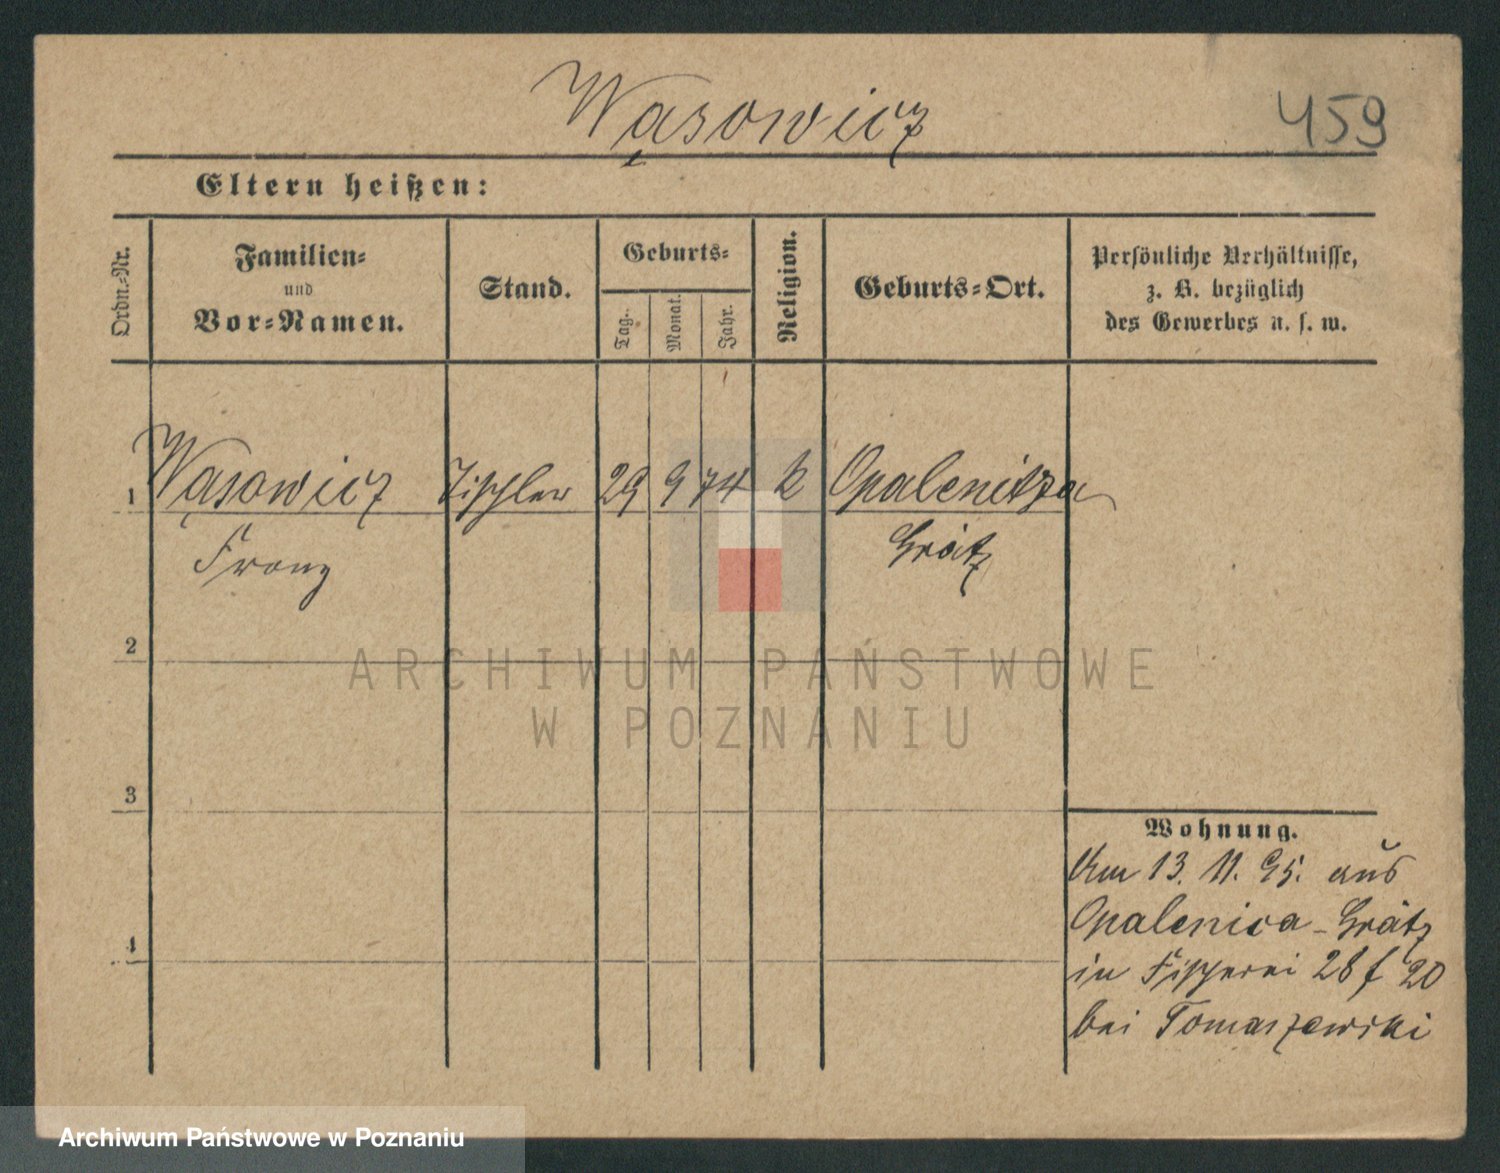 Wąsowicz
459
Eltern heißen:
Ordn.-Nr.
Familien-
und
Vor-Namen.
Stand.
Geburts-
Tag.
Monat.
Jahr.
Religion.
Geburts-Ort.
Persönliche Verhältnisse,
z. B. bezüglich
des Gewerbes u. s. w.
1 Wąsowicz Tischler 29 9 74 k Opalenitza
Franz Grätz
2
ARCHIWUM PAŃSTWOWE
W POZNANIU
3
Wohnung.
Am 13. 11. 95. aus
Opalenica - Grätz
4
in Fischerei 28 f 20
bei Tomaszewski
Archiwum Państwowe w Poznaniu